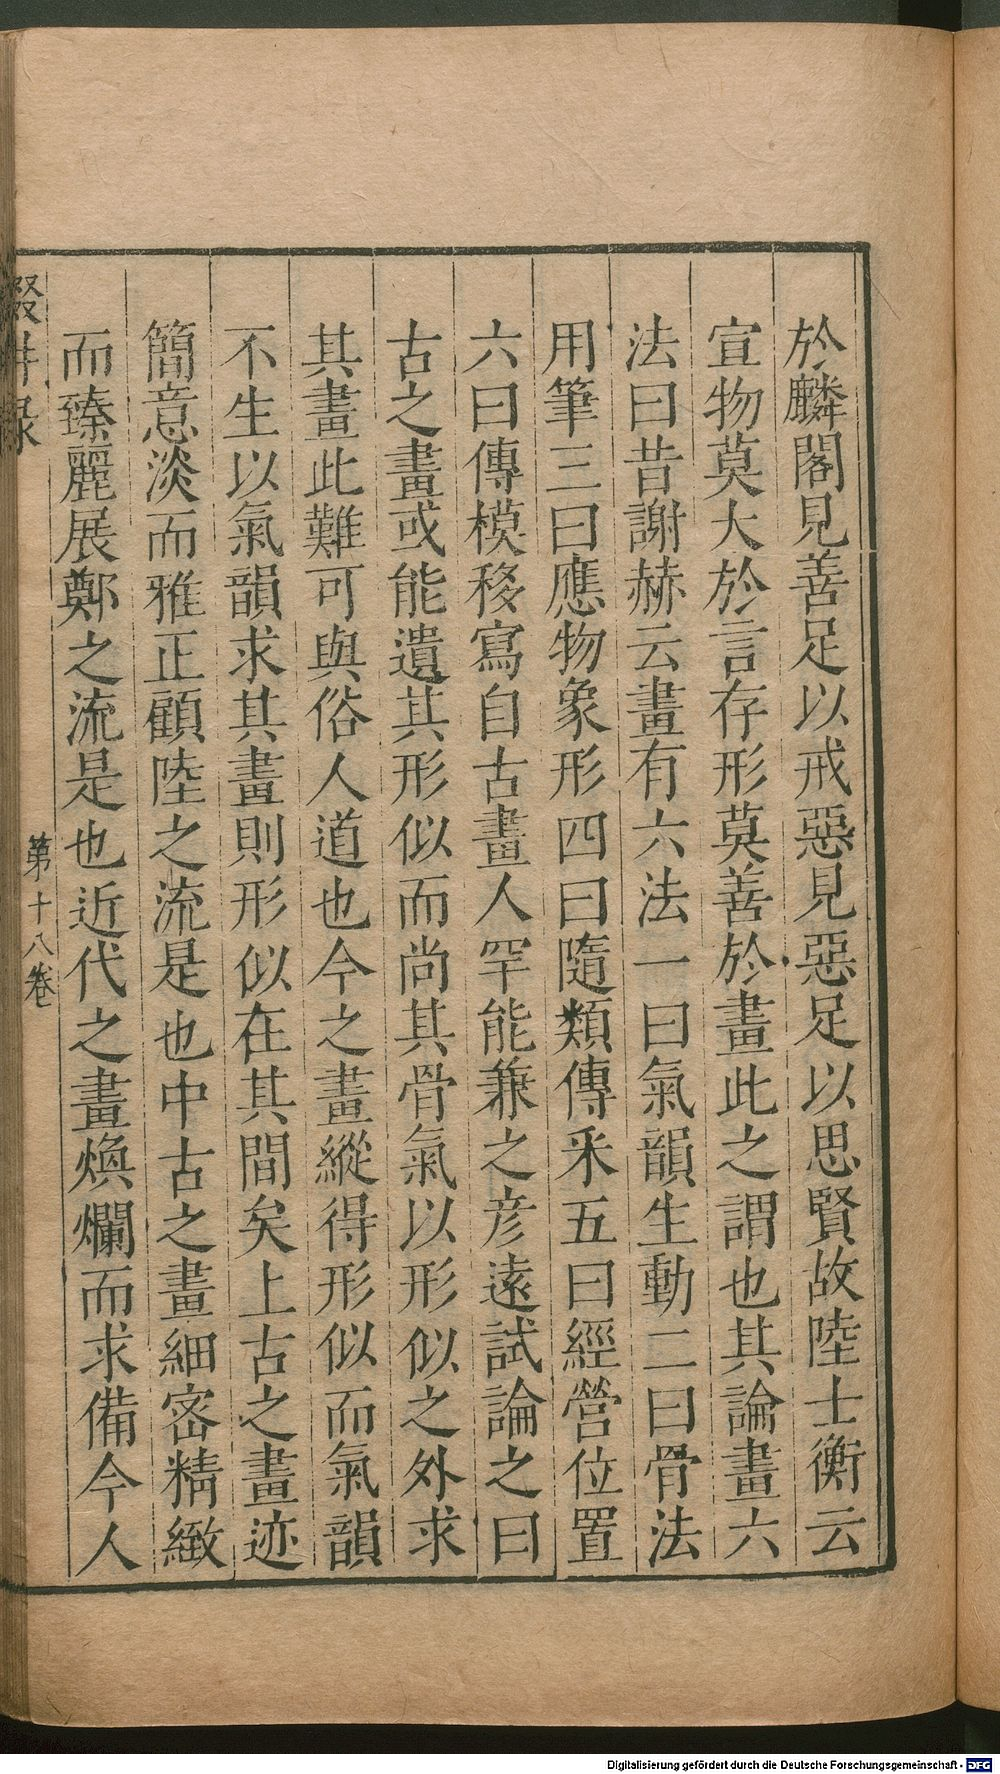 於麟閣見善足以戒惡見惡足以思賢故陸士衡云
宣物莫大於言存形莫善於畫此之謂也其論畫六
法曰昔謝赫云畫有六法一曰氣韻生動二曰骨法
用筆三曰應物象形四曰隨類傳采五曰經營位置
六曰傳模移寫自古畫人罕能兼之彦遠試論之曰
古之畫或能遺其形似而尚其骨氣以形似之外求
其畫此難可與俗人道也今之畫縱得形似而氣韻
不生以氣韻求其畫則形似在其間矣上古之畫迹
簡意淡而雅正顧陸之流是也中古之畫細密精緻
而臻麗展鄭之流是也近代之畫煥爛而求備今人
輟耕錄
第十八卷
Digitalisierung gefördert durch die Deutsche Forschungsgemeinschaft - DFG